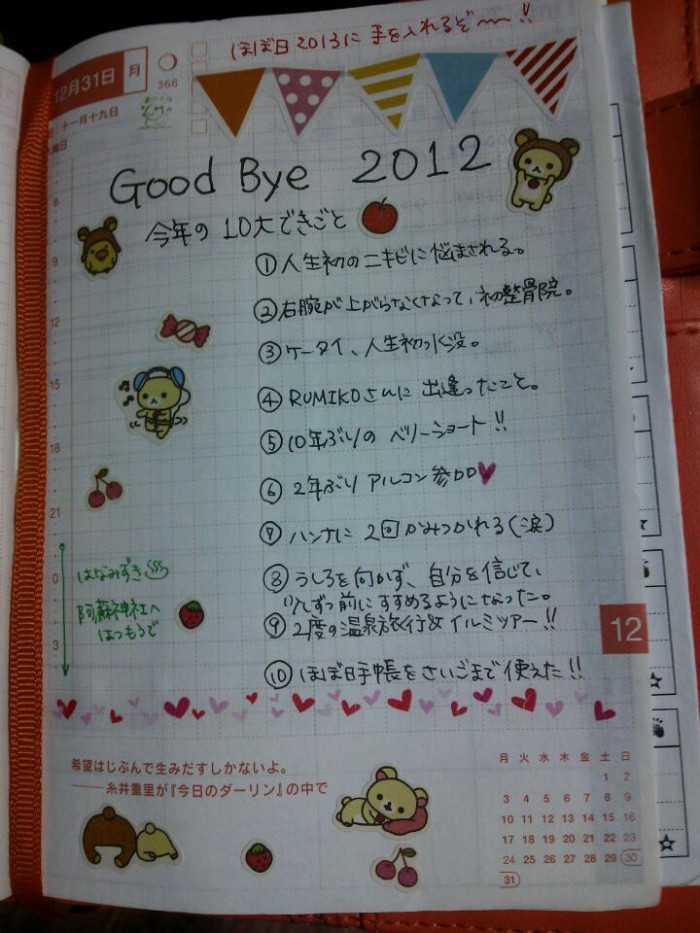 ほぼ日2013に 手を入れるぞ〜〜!!
12月31日 月
366
十一月十九日
Good Bye 2012
今年の10大できごと
① 人生初のニキビに悩まされる。
② 右腕が上がらなくなって、初整骨院。
③ ケータイ、人生初水没。
④ RUMIKOさんに 出逢ったこと。
⑤ 10年ぶりの ベリーショート!!
⑥ 2年ぶり アルコン参加
⑦ ハンナに 2回かみつかれる(涙)
⑧ うしろを向かず、自分を信じて、
少しずつ前にすすめるようになった。
⑨ 2度の温泉旅行&イルミツアー!!
⑩ ほぼ日手帳をさいごまで使えた!!
9
12
15
18
21
0
3
はなみずき
阿蘇神社へ
はつもうで
12
希望はじぶんで生みだすしかないよ。
——糸井重里が『今日のダーリン』の中で
月 火 水 木 金 土 日
1 2
3 4 5 6 7 8 9
10 11 12 13 14 15 16
17 18 19 20 21 22 23
24 25 26 27 28 29 30
31